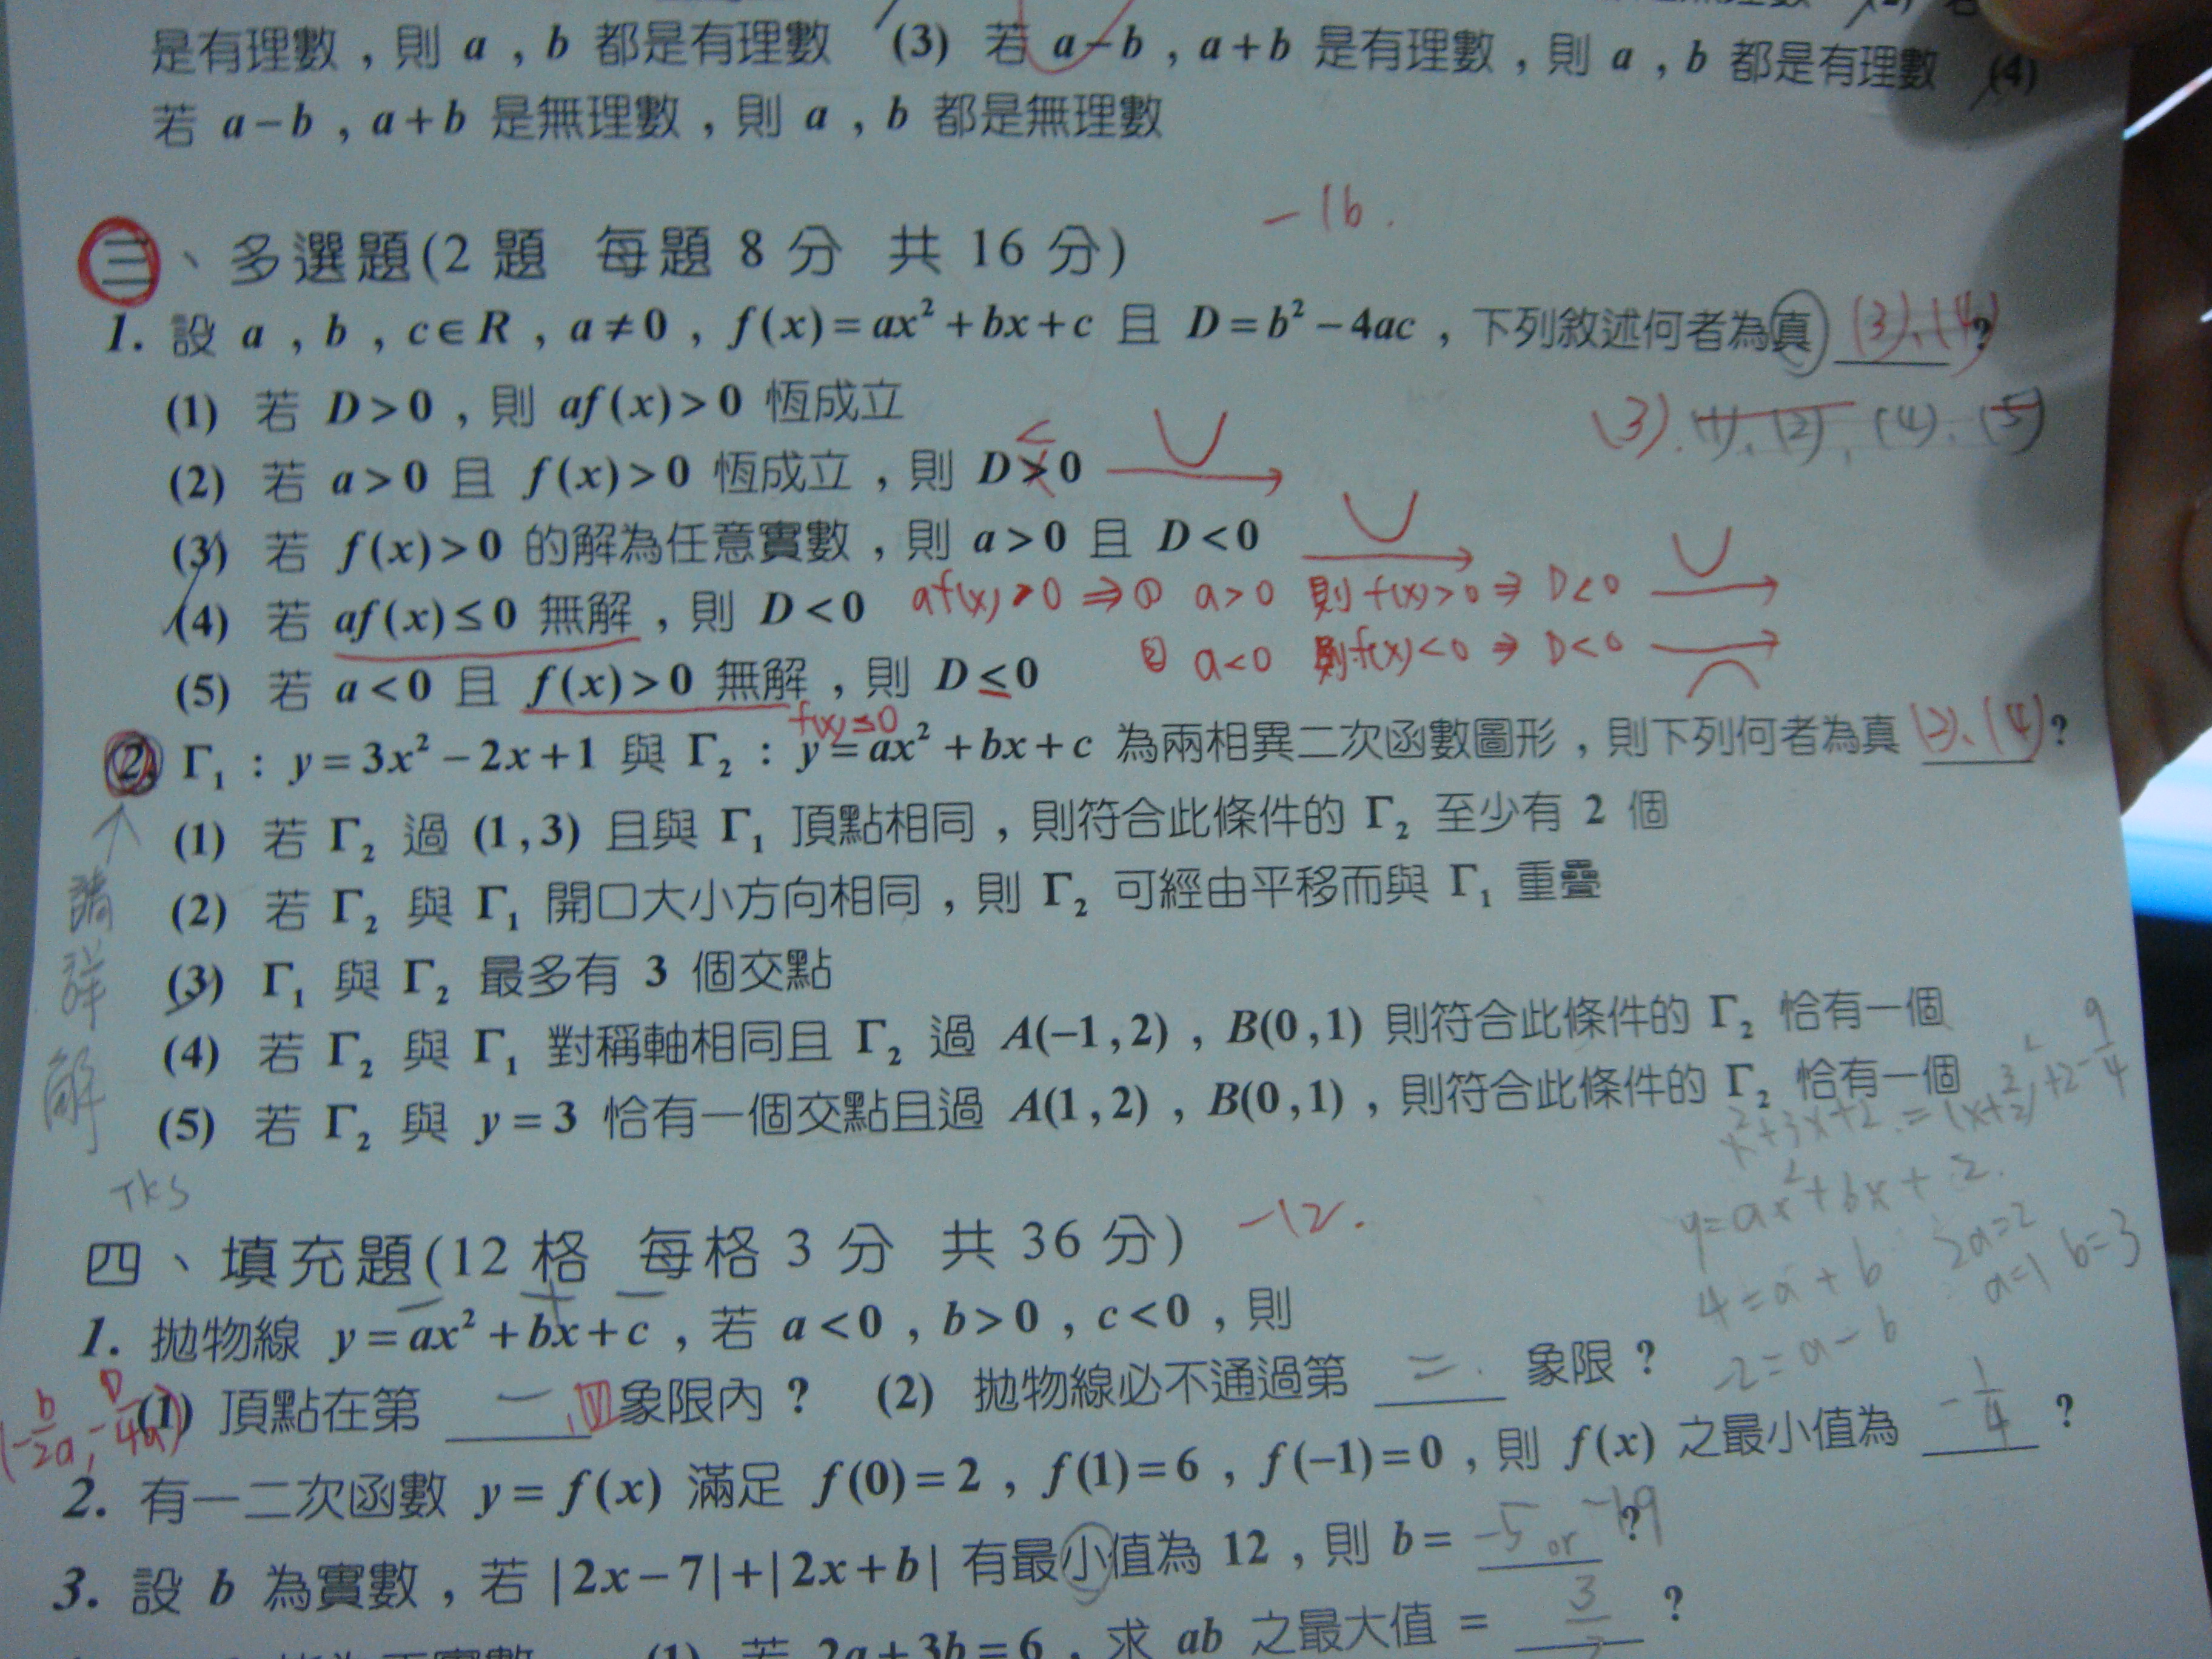 是有理數，則 a，b 都是有理數 (3) 若 a−b，a+b 是有理數，則 a，b 都是有理數 (4)
若 a−b，a+b 是無理數，則 a，b 都是無理數
−16.
三、多選題(2 題 每題 8 分 共 16 分)
1. 設 a，b，c∈R，a≠0，f(x)=ax²+bx+c 且 D=b²−4ac，下列敘述何者為真 (3)、(4) ?
(3). (1)、(2)、(4)、(5)
(1) 若 D>0，則 af(x)>0 恆成立
<
(2) 若 a>0 且 f(x)>0 恆成立，則 D>0
(3) 若 f(x)>0 的解為任意實數，則 a>0 且 D<0
(4) 若 af(x)≤0 無解，則 D<0 af(x)>0 ⇒ ① a>0 則 f(x)>0 ⇒ D<0
② a<0 則 f(x)<0 ⇒ D<0
(5) 若 a<0 且 f(x)>0 無解，則 D≤0
f(x)≤0
2. Γ₁：y=3x²−2x+1 與 Γ₂：y=ax²+bx+c 為兩相異二次函數圖形，則下列何者為真 (2)、(4) ?
(1) 若 Γ₂ 過 (1,3) 且與 Γ₁ 頂點相同，則符合此條件的 Γ₂ 至少有 2 個
(2) 若 Γ₂ 與 Γ₁ 開口大小方向相同，則 Γ₂ 可經由平移而與 Γ₁ 重疊
(3) Γ₁ 與 Γ₂ 最多有 3 個交點
(4) 若 Γ₂ 與 Γ₁ 對稱軸相同且 Γ₂ 過 A(−1,2)，B(0,1) 則符合此條件的 Γ₂ 恰有一個
(5) 若 Γ₂ 與 y=3 恰有一個交點且過 A(1,2)，B(0,1)，則符合此條件的 Γ₂ 恰有一個
請詳解
TKS
x²+3x+2=(x+3/2)²+2−9/4
y=ax²+bx+2.
4=a+b 2a=2
2=a−b a=1 b=3
四、填充題(12 格 每格 3 分 共 36 分) −12.
− + −
1. 拋物線 y=ax²+bx+c，若 a<0，b>0，c<0，則
(−b/2a, −D/4a)
(1) 頂點在第 一、四 象限內? (2) 拋物線必不通過第 二. 象限?
2. 有一二次函數 y=f(x) 滿足 f(0)=2，f(1)=6，f(−1)=0，則 f(x) 之最小值為 −1/4 ?
3. 設 b 為實數，若 |2x−7|+|2x+b| 有最小值為 12，則 b= −5 or −19 ?
(1) 若 2a+3b=6，求 ab 之最大值 = ?